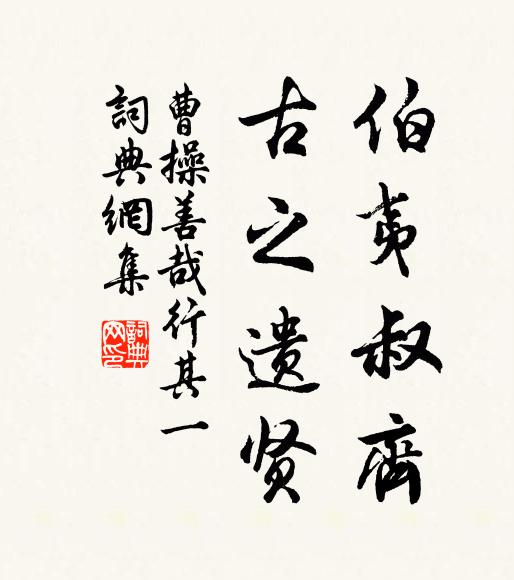 伯夷叔齊
古之遗贤
曹操善哉行其一
詞典網集
詞典網印